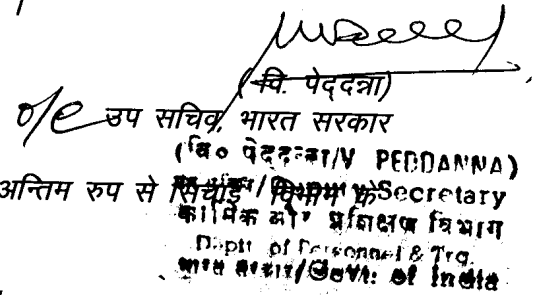 (वि. पेद्दन्ना)
o/c उप सचिव, भारत सरकार
(वि० पेद्दन्ना/V PEDDANNA)
अन्तिम रुप से सिंचाई विभाग के
उप सचिव/Deputy Secretary
कार्मिक और प्रशिक्षण विभाग
Deptt. of Personnel & Trg.
भारत सरकार/Govt. of India